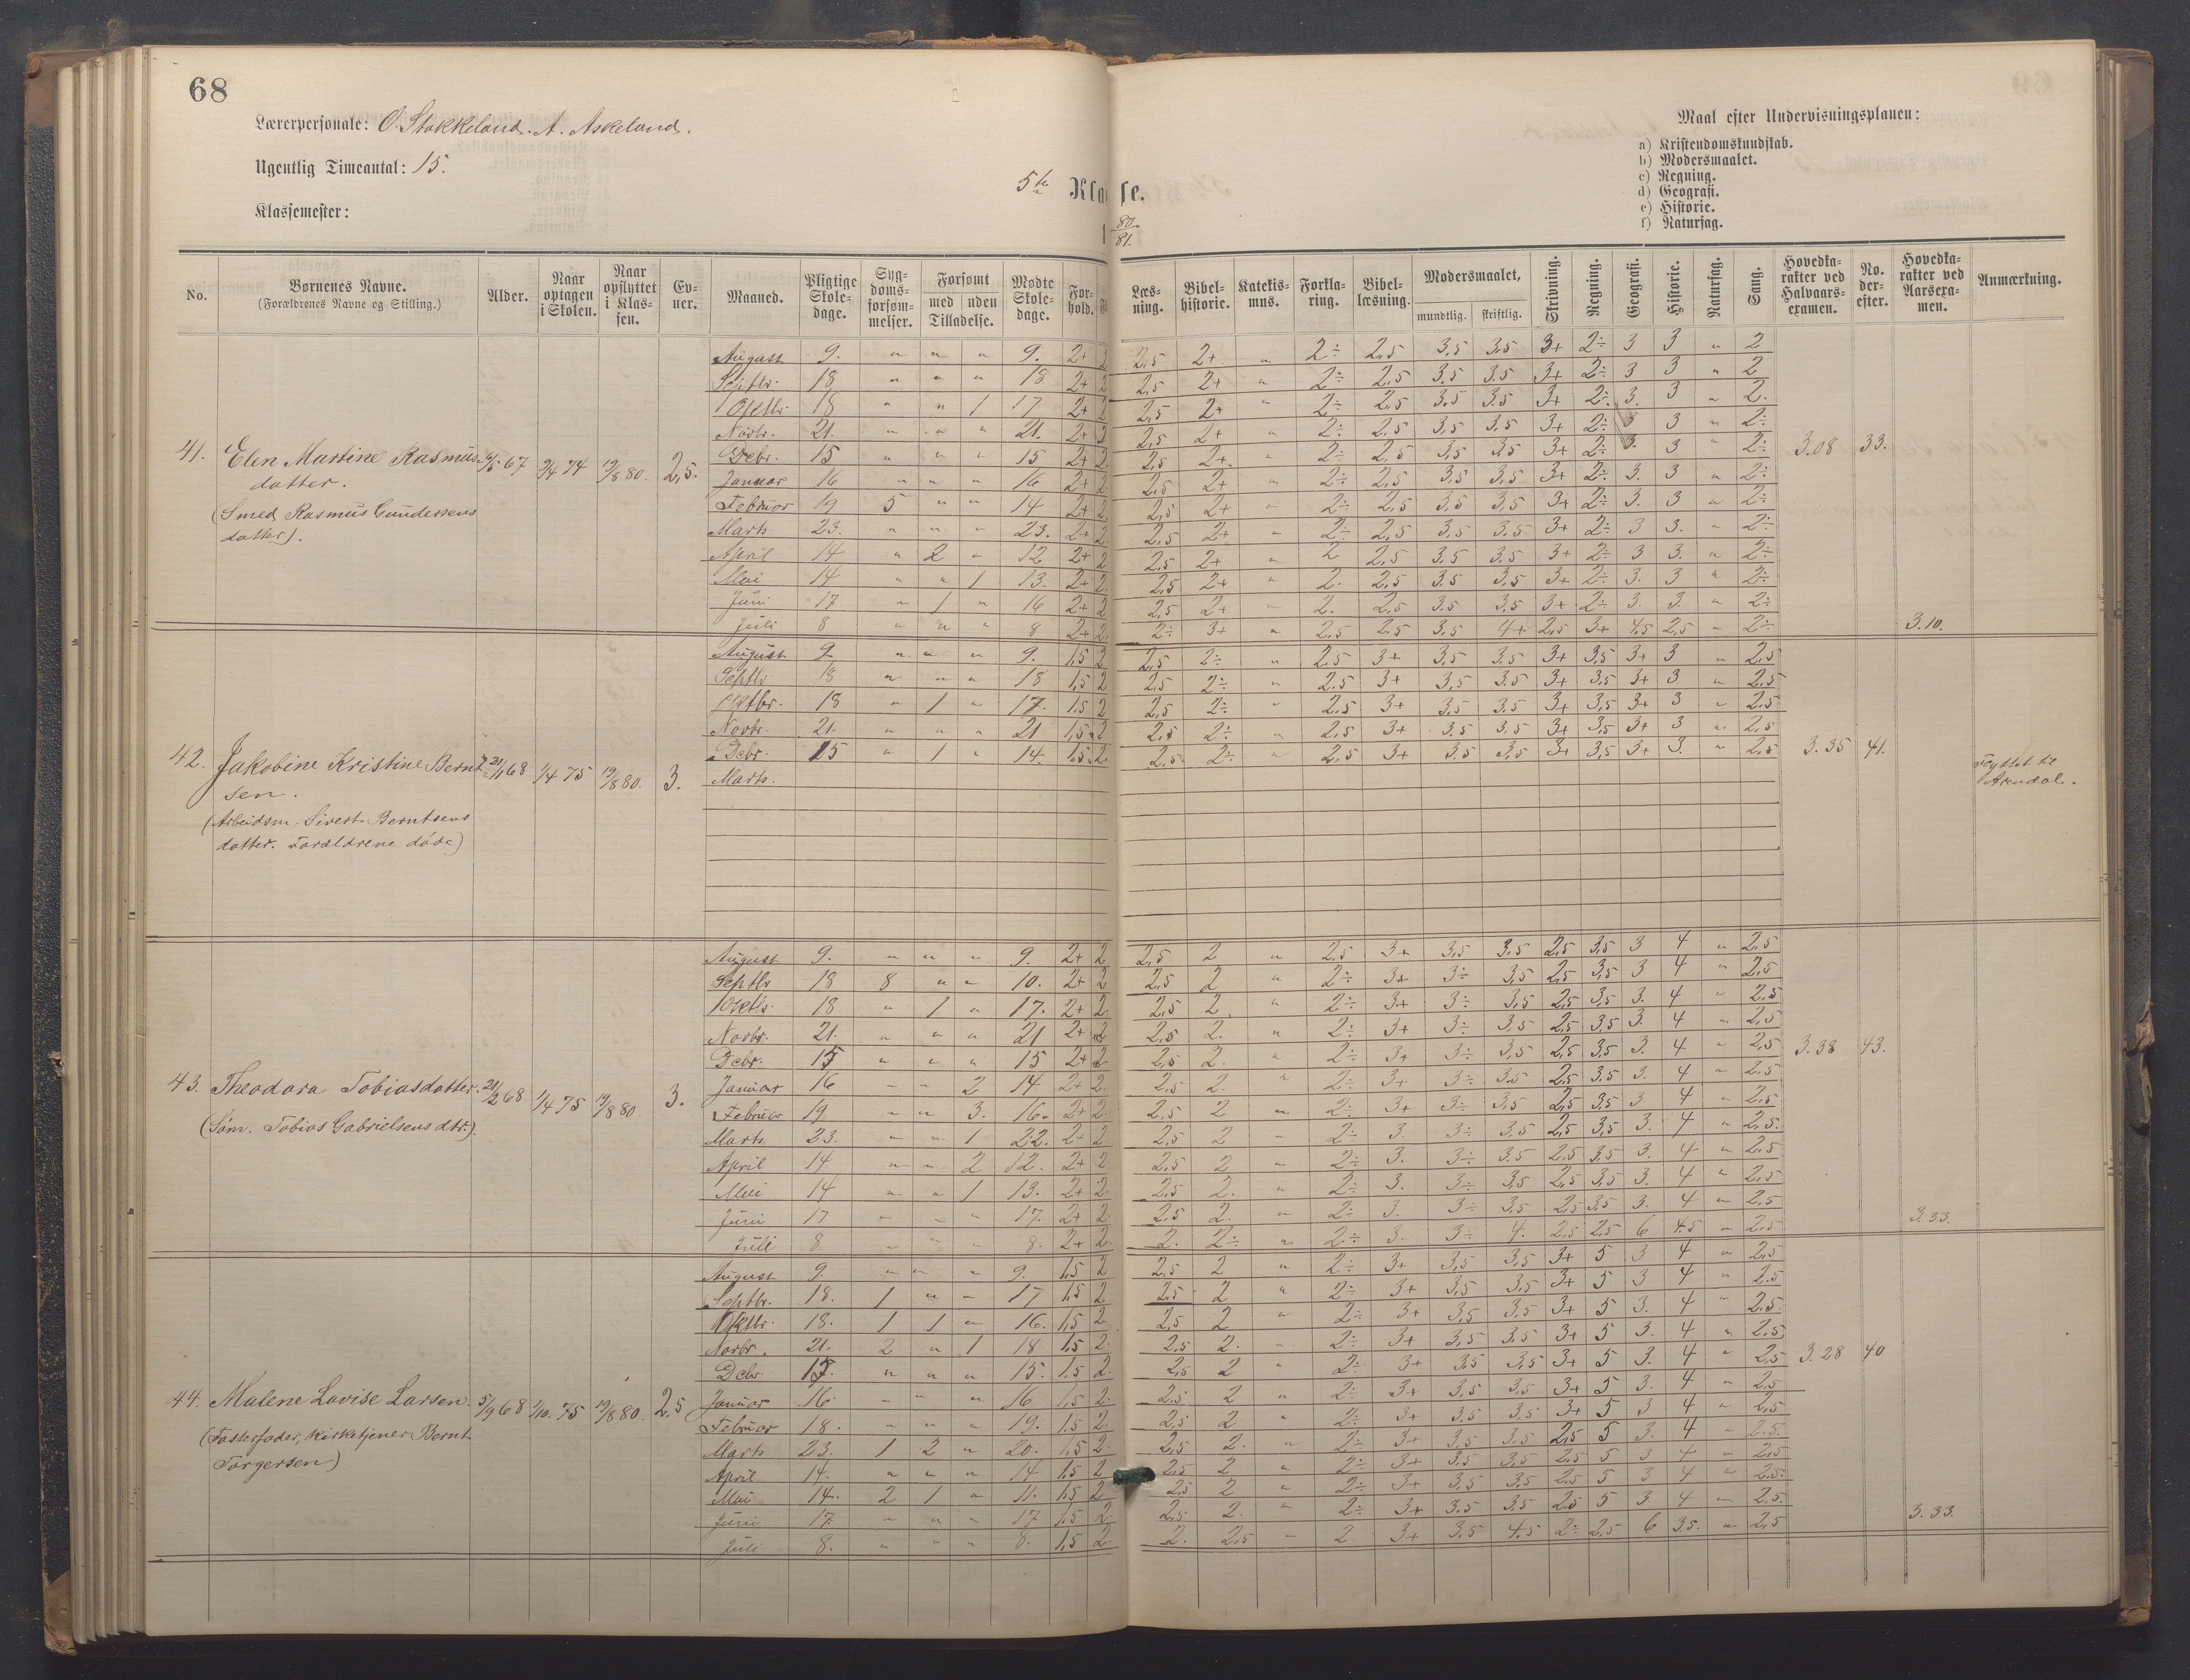 68
Lærerpersonale: O. Stokkeland. A. Askeland.
Ugentlig Timeantal: 15.
Klassemester:
5te Klasse.
80/81.
Maal efter Undervisningsplanen:
a) Kristendomskundskab.
b) Modersmaalet.
c) Regning.
d) Geografi.
e) Historie.
f) Naturfag.
No. Børnenes Navne. (Forældrenes Navne og Stilling.) Alder. Naar optagen i Skolen. Naar opflyttet i Klassen. Evner. Maaned. Pligtige Skoledage. Sygdomsforsømmelser. Forsømt med uden Tilladelse. Mødte Skoledage. Forhold. Læsning. Bibelhistorie. Katekismus. Forklaring. Bibellæsning. Modersmaalet, mundtlig. skriftlig. Skrivning. Regning. Geografi. Historie. Naturfag. Sang. Hovedkarakter ved Halvaarsexamen. No. derefter. Hovedkarakter ved Aarsexamen. Anmærkning.
41. Elen Martine Rasmusdatter. (Smed Rasmus Gundersens datter). 67 9/4 74 19/8 80. 2,5. 3.08 33. 3.10.
August 9. " " " 9. 2+ 2 2,5 2+ " 2÷ 2,5 3,5 3,5 3+ 2÷ 3 3 " 2
Septbr. 18 " " " 18 2+ 2 2,5 2+ " 2÷ 2,5 3,5 3.5 3+ 2÷ 3 3 " 2
Oktbr. 18 " " 1 17 2+ 2 2,5 2+ " 2÷ 2,5 3,5 3.5 3+ 2÷ 3. 3 " 2.
Novbr. 21. " " " 21. 2+ 2 2,5 2+ " 2÷ 2,5 3,5 3,5 3+ 2÷ 3 3 " 2÷
Debr. 15 " " " 15 2+ 2 2,5 2+ " 2÷ 2,5 3,5 3,5 3+ 2÷ 3. 3 " 2÷
Januar 16 " " " 16 2+ 2 2,5 2+ " 2÷ 2,5 3,5 3,5 3+ 2÷ 3. 3 " 2÷
Februar 19 5 " " 14 2+ 2 2,5 2+ " 2÷ 2,5 3,5 3,5 3+ 2÷ 3. 3 " 2÷
Marts 23. " " " 23. 2+ 2 2,5 2+ " 2÷ 2,5 3,5 3.5 3+ 2÷ 3 3. " 2÷
April 14 " 2 " 12 2+ 2 2,5 2+ " 2 2,5 3,5 3,5 3+ 2÷ 3 3. " 2÷
Mai 14 " " 1 13. 2+ 2 2,5 2+ " 2. 2,5 3.5 3,5 3+ 2÷ 3. 3 " 2÷
Juni 17 " 1 " 16 2+ 2 2,5 2+ " 2. 2,5 3,5 3,5 3+ 2÷ 3. 3. " 2÷
Juli 8 " " " 8 2+ 2. 2÷ 3+ " 2,5 2,5 3,5 4+ 2,5 3+ 4,5 2,5 " 2÷
42. Jakobine Kristine Berntsen. (Arbeidsm. Sivert Berntsens datter. Forældrene døde) 68 1/4 75 19/8 80. 3. 3.35 41. Flyttet til Arendal.
August 9. " " " 9. 1,5 2 2,5 2÷ " 2,5 3+ 3,5 3,5 3+ 3,5 3+ 3 " 2,5
Septbr 18 " " " 18 1,5 2 2,5 2÷ " 2.5 3+ 3,5 3.5 3+ 3,5 3+ 3 " 2.5
Oktbr. 18 " 1 " 17. 1,5 2 2,5 2÷ " 2,5 3+ 3,5 3.5 3+ 3,5 3+ 3 " 2,5
Novbr. 21. " " " 21 1,5 2 2,5 2÷ " 2,5 3+ 3.5 3,5 3+ 3,5 3+ 3 " 2,5
Debr. 15 " 1 " 14. 1,5 2. 2,5 2÷ " 2,5 3+ 3,5 3,5 3+ 3,5 3+ 3. " 2,5
Marts.
43. Theodora Tobiasdatter. (Søm. Tobias Gabrielsens dtr.). 21/2 68 1/4 75 19/8 80. 3. 3.38 43. 3.33.
August 9. " " " 9. 2+ 2 2,5 2 " 2,5 3+ 3,5 3.5 2,5 3,5 3 4 " 2,5
Septbr 18 8 " " 10. 2+ 2 2,5 2 " 2÷ 3+ 3÷ 3,5 2,5 3,5 3 4 " 2,5
Oktbr. 18 " 1 " 17. 2+ 2. 2,5 2 " 2÷ 3+ 3÷ 3,5 2,5 3,5 3. 4 " 2.5
Novbr. 21. " " " 21 2+ 2 2,5 2. " 2÷ 3+ 3÷ 3.5 2,5 3,5 3. 4 " 2,5
Debr. 15 " " " 15 2+ 2. 2,5 2. " 2÷ 3+ 3÷ 3,5 2,5 3,5 3. 4 " 2,5
Januar 16 " " 2 14 2+ 2. 2,5 2. " 2÷ 3+ 3÷ 3.5 2,5 3.5 3. 4 " 2.5
Februar 19 " " 3. 16. 2+ 2. 2,5 2 " 2÷ 3+ 3÷ 3,5 2,5 3,5 3 4 " 2,5
Marts 23. " " 1 22. 2+ 2. 2,5 2 " 2÷ 3. 3÷ 3.5 2,5 3,5 3. 4 " 2,5.
April 14 " " 2 12. 2+ 2 2,5 2 " 2÷ 3. 3÷ 3.5 2,5 3.5 3. 4 " 2,5
Mai 14 " " 1 13. 2+ 2. 2,5 2. " 2÷ 3. 3÷ 3,5 2,5 3,5 3. 4 " 2,5
Juni 17 " " " 17. 2+ 2. 2,5 2. " 2÷ 3. 3÷ 3,5 2,5 3,5 3. 4 " 2.5
Juli 8 " " " 8. 2+ 2. 2. 2÷ " 2÷ 3. 3÷ 4. 2,5 2,5 6 4.5 " 2,5
44. Malene Lovise Larsen. (Fosterfader, Kirketjener Bernt Torgersen) 5/9 68 1/10. 75 19/8 80. 2,5 3.28 40 3.33.
August 9. " " " 9. 1,5 2 2,5 2 " 2÷ 3+ 3,5 3,5 3+ 5 3 4 " 2,5
Septbr. 18. 1 " " 17 1,5 2 2,5 2 " 2÷ 3+ 3,5 3,5 3+ 5 3 4 " 2.5
Oktbr. 18. 1 1 " 16. 1,5 2. 2,5 2 " 2÷ 3+ 3,5 3,5 3+ 5 3. 4 " 2.5
Novbr. 21. 2 " 1 18 1,5 2. 2,5 2. " 2÷ 3+ 3,5 3.5 3+ 5 3. 4 " 2,5
Debr 15. " " " 15. 1.5 2. 2,5 2 " 2÷ 3+ 3.5 3,5 3+ 5 3. 4 " 2,5
Januar 16. " " " 16 1,5 2. 2,5 2 " 2÷ 3+ 3,5 3,5 3+ 5 3. 4 " 2,5
Februar 18. " " " 19. 1.5 2. 2,5 2 " 2÷ 3+ 3,5 3,5 3+ 5 3 4 " 2,5
Marts 23. 1 2 " 20. 1,5 2. 2,5 2. " 2÷ 3+ 3,5 3,5 2,5 5 3. 4 " 2.5
April 14. " " " 14 1,5 2 2,5 2 " 2÷ 3+ 3,5 3,5 2,5 5 3 4 " 2,5
Mai 14. 2 1 " 11. 1,5 2 2,5 2 " 2÷ 3+ 3,5 3,5 2,5 5 3 4 " 2,5.
Juni 17. " " " 17 1,5 2. 2,5 2. " 2÷ 3+ 3,5 3,5 2,5 5 3. 4 " 2,5.
Juli 8. " " " 8. 1,5 2. 2. 2,5 " 2 3+ 3,5 4.5 2÷ 2,5 6 3.5. " 2,5